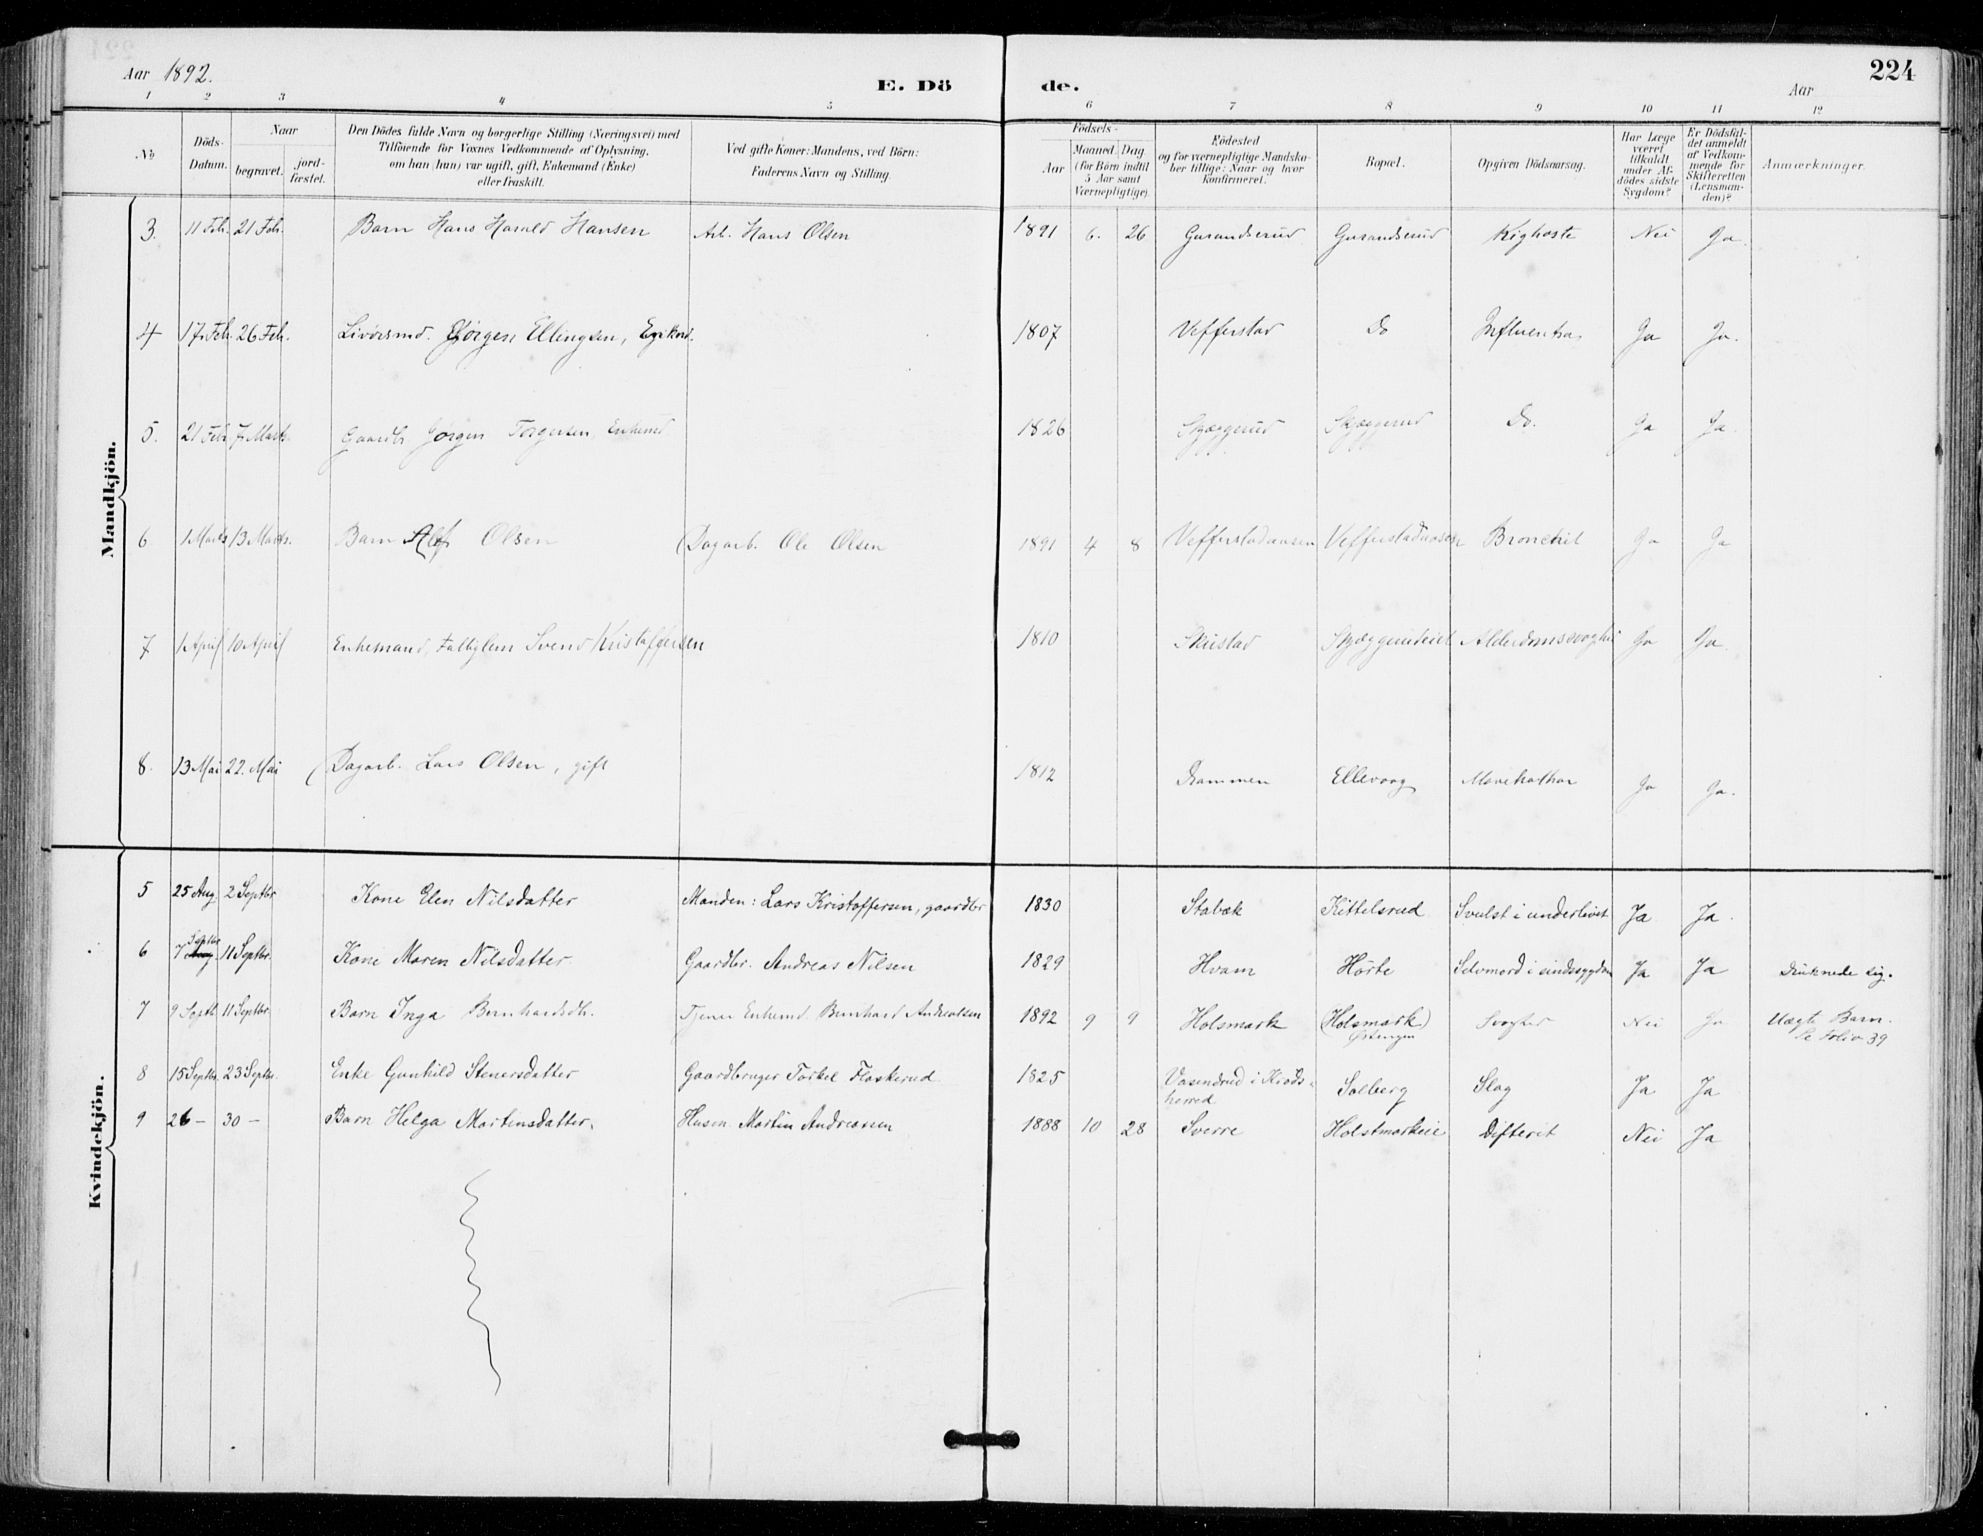 Aar 1892.
E. Döde.
Aar
224
1 2 3 4 5 6 7 8 9 10 11 12
No
Döds-Datum.
Naar
begravet.
jord-fæstet.
Den Dödes fulde Navn og borgerlige Stilling (Næringsvei) med
Tilföiende for Voxnes Vedkommende af Oplysning,
om han (hun) var ugift, gift, Enkemand (Enke)
eller fraskilt.
Ved gifte Koner: Mandens, ved Börn:
Faderens Navn og Stilling.
Födsels-
Aar
Maaned. Dag
(for Börn indtil
5 Aar samt
Værnepligtige).
Födested
og for værnepligtige Mandska-
ber tillige: Naar og hvor
konfirmeret.
Bopæl.
Opgiven Dödsaarsag.
Har Læge
været
tilkaldt
under Af-
dödes sidste
Sygdom?
Er Dödsfal-
det anmeldt
af Vedkom-
mende for
Skifteretten
(Lensman-
den)?
Anmærkninger.
Mandkjön.
3. 11 Feb. 21 Feb. Barn Hans Harald Hansen Arb. Hans Olsen 1891 6. 26 Gurandsrud Gurandsrud Kighoste Nei Ja.
4 17. Feb. 26 Feb. Jørgen Ellingsen, 1807 Vefferstad Do Influentsa Ja Ja.
5. 21 Feb. 7. Marts. Gaardbr. Jørgen Torgersen, Enkemd 1826 Skjæggerud Skjæggerud Do. Ja Ja.
6 1 Marts 13 Marts. Barn Alf Olsen Dagarb. Ole Olsen 1891 4 8 Vefferstadaasen Vefferstadaasen Bronchit Ja Ja
7 1 April 10 April Enkemand, Svend Kristoffersen 1810 Skustad Alderdomssvaghed Ja Ja.
8. 13 Mai 22. Mai Dagarb. Lars Olsen, gift 1812 Drammen Ellevaag Mavekathar Ja Ja.
Kvindekjön.
5 25 Aug. 2 Septbr Kone Elen Nilsdatter Manden: Lars Kristoffersen, gaardbr 1830 Stabæk Kittelsrud Svulst i underlivet Ja Ja.
6 7 Septbr 11 Septbr. Kone Maren Nilsdatter Gaardbr. Andreas Nilsen 1829 Hvam Hørte Selvmord i sindssygdom Ja Ja Druknede sig.
7 9 Septb. 11 Septbr. Barn Inga Bernhardsdt. Tjener Enkemd Bernhard Andreassen 1892 9 9 Holsmark (Holsmark) Svaghed Nei Ja Uægte Barn.
Østengen Se Folio 39
8 15 Septbr. 23 Septbr. Enke Gunhild Stenersdatter Gaardbruger Torkel Flaskerud 1825 Vasendrud i Krøds-
herred Solberg Slag Ja Ja
9 26 – 30 – Barn Helga Martinsdatter. Husm. Martin Andreassen 1888 10 28 Sverre Holstmarkeie Difterit Nei Ja